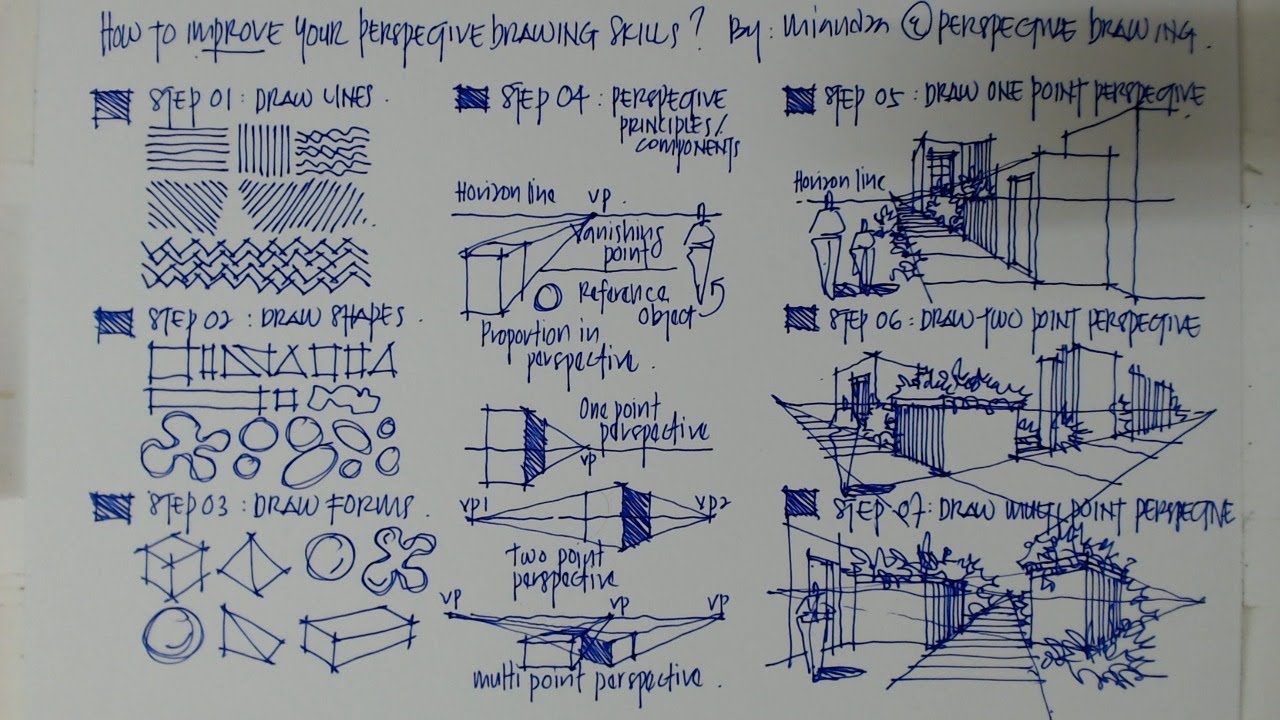 HOW TO IMPROVE YOUR PERSPECTIVE DRAWING SKILLS? BY: MIANDZA @PERSPECTIVE DRAWING.
STEP 01: DRAW LINES.
STEP 02: DRAW SHAPES.
STEP 03: DRAW FORMS.
STEP 04: PERSPECTIVE
PRINCIPLES/
COMPONENTS
Horizon line
VP.
Vanishing
point
Reference
object
Proportion in
perspective.
One point
perspective
VP
VP1
VP2
two point
perspective
VP
VP
VP
multi point perspective.
STEP 05: DRAW ONE POINT PERSPECTIVE
Horizon line
STEP 06: DRAW TWO POINT PERSPECTIVE
STEP 07: DRAW MULTI POINT PERSPECTIVE